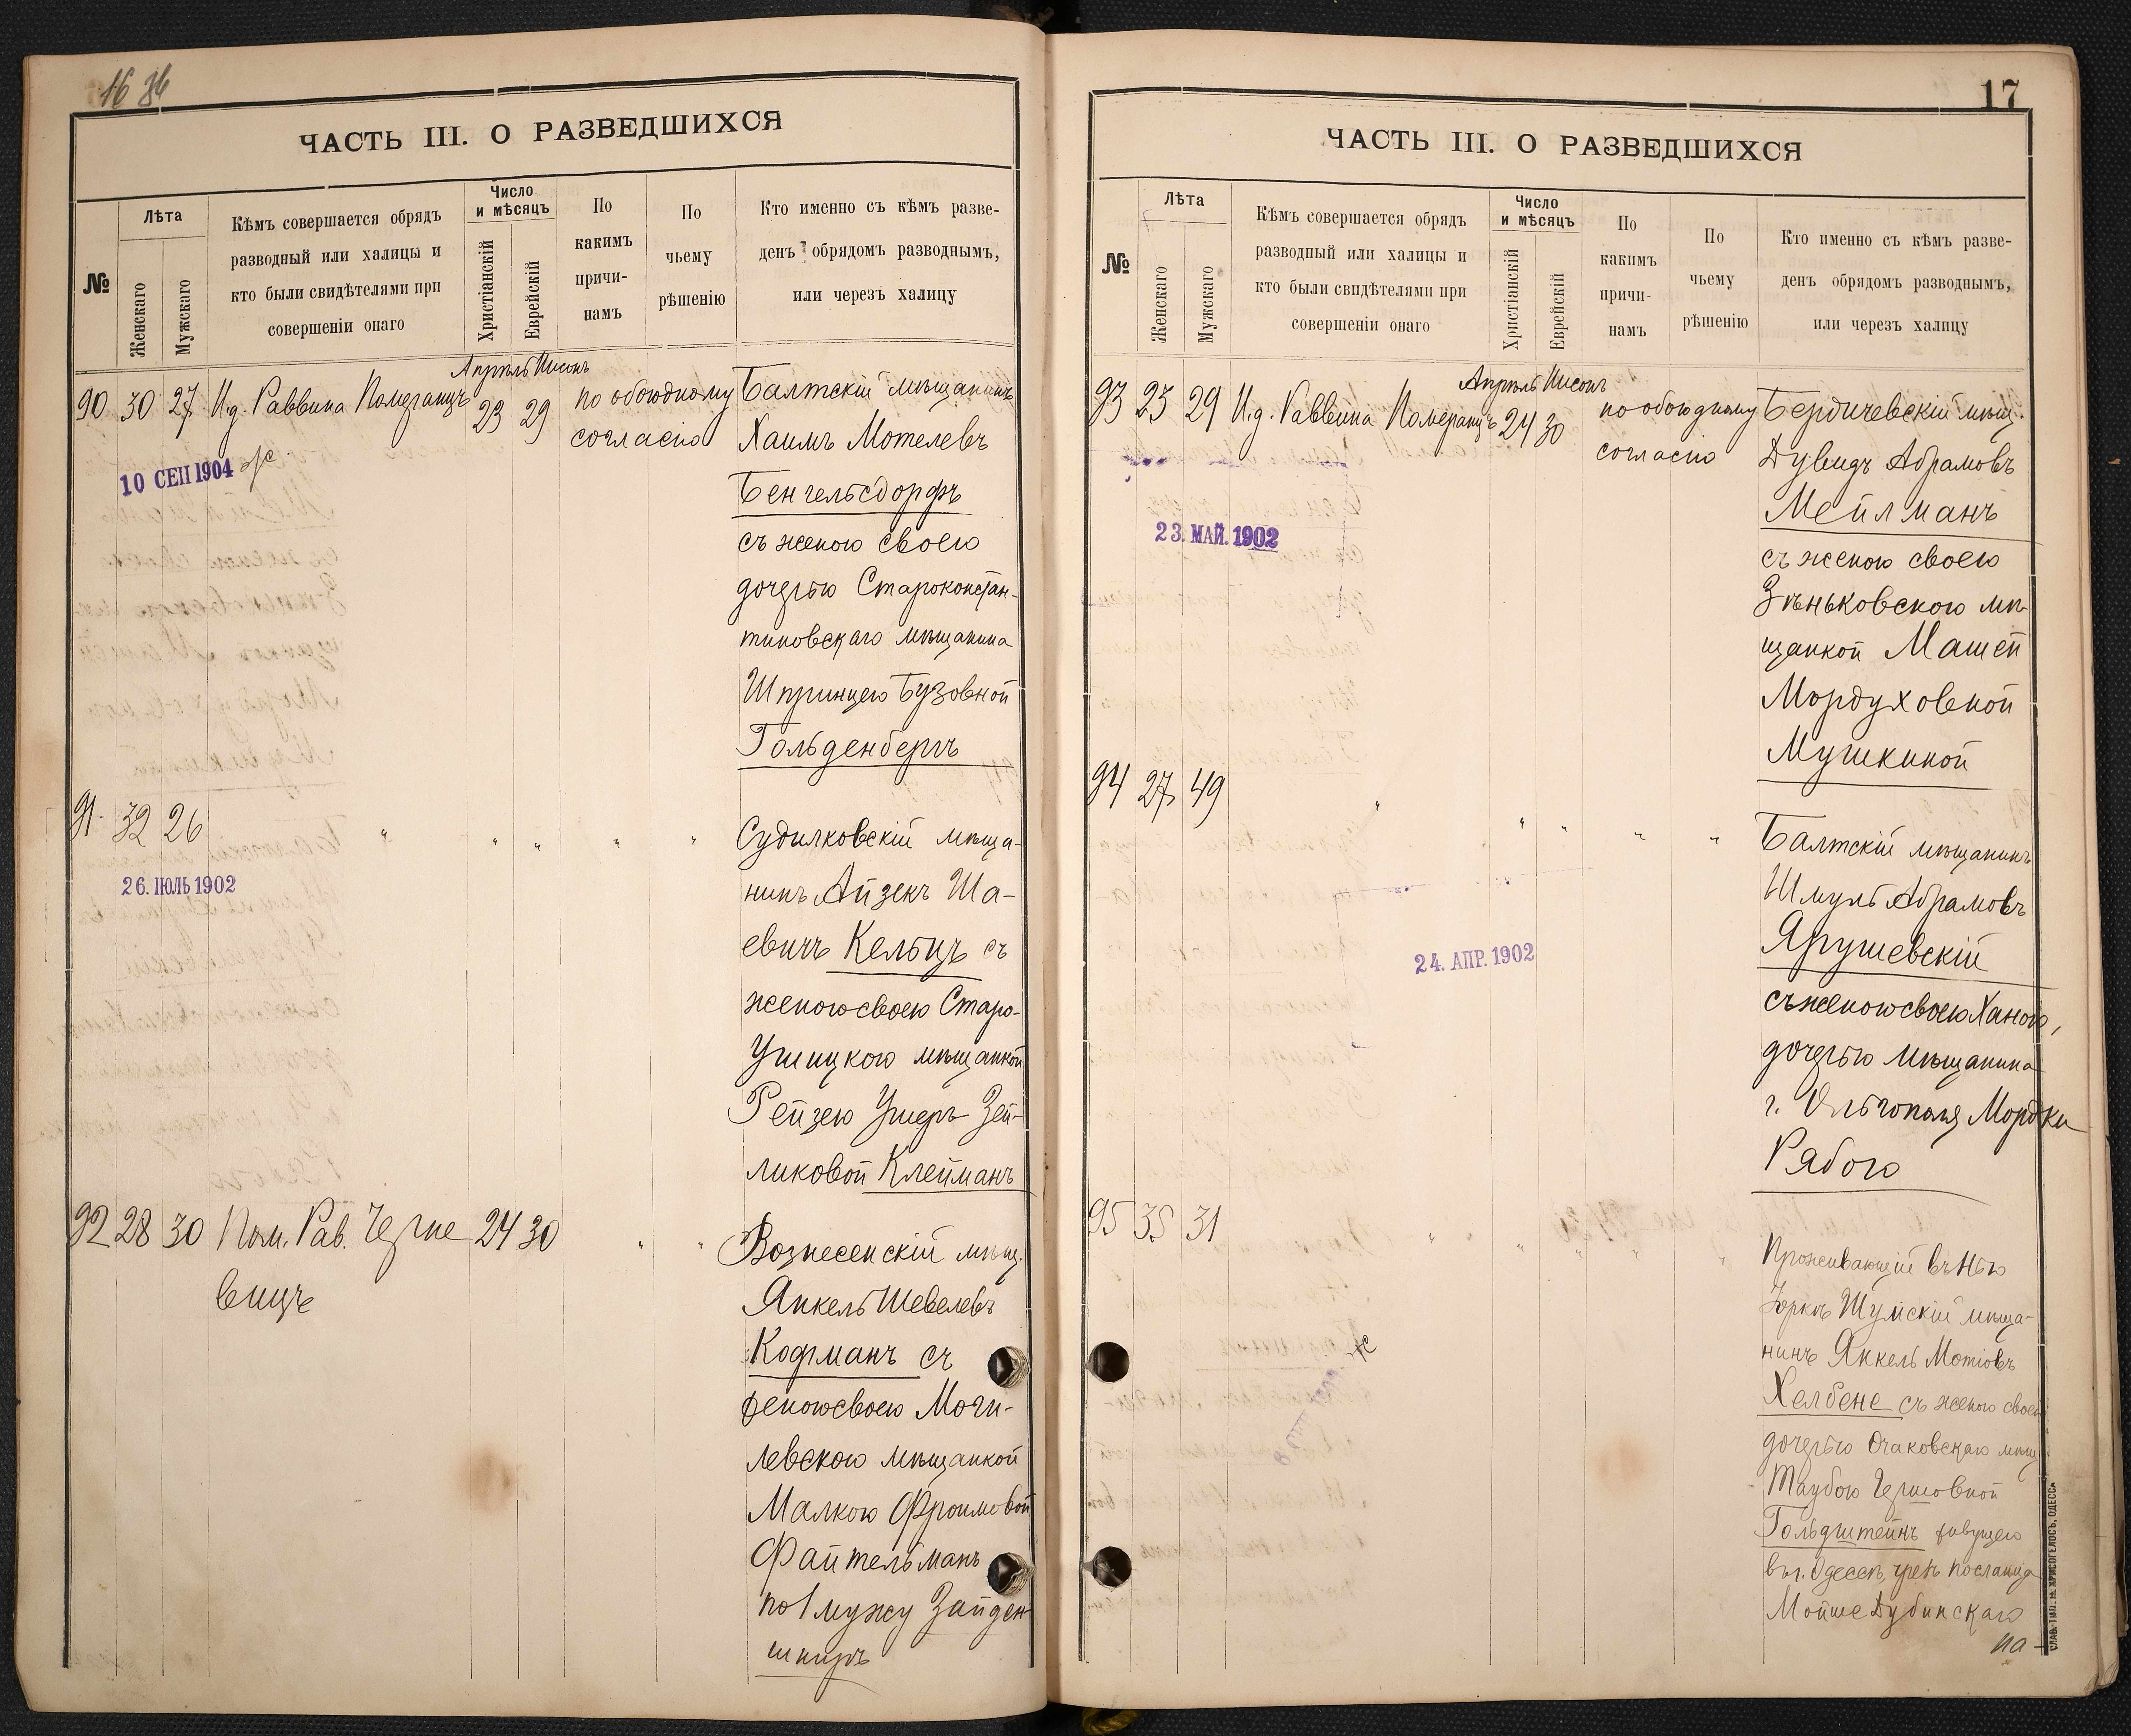 16 86
ЧАСТЬ III. О РАЗВЕДШИХСЯ
№
Лѣта
Женскаго
Мужскаго
Кѣмъ совершается обрядъ
разводный или халицы и
кто были свидѣтелями при
совершеніи онаго
Число
и мѣсяцъ
Христіанскій
Еврейскій
По
какимъ
причи-
намъ
По
чьему
рѣшенію
Кто именно съ кѣмъ разве-
денъ обрядомъ разводнымъ,
или черезъ халицу
Апрѣль Нисонъ
90 30 27 И.д. Раввина Померанцъ 23 29 по обоюдному Балтскій мѣщанинъ
согласію Хаимъ Мотелевъ
10 СЕП 1904
Бенгельсдорфъ
съ женою своею
дочерью Староконстан-
тиновскаго мѣщанина
Шпринцею Бузовной
Гольденбергъ
91. 32 26 " " " " " Судилковскій мѣща-
26. ІЮЛЬ 1902
нинъ Айзекъ Ша-
евичъ Кельцъ съ
женою своею Старо-
Ушицкою мѣщанкой
Рейзею Ушеръ Зей-
ликовой Клейманъ
92 28 30 Пом. Рав. Черне 24 30 " " Вознесенскій мѣщ.
вицъ
Янкель Шевелевъ
Кофманъ съ
женою своею Моги-
левскою мѣщанкой
Малкою Фроимовой
Файтельманъ
по 1 мужу Зайден
шнцръ
17
ЧАСТЬ III. О РАЗВЕДШИХСЯ
№
Лѣта
Женскаго
Мужскаго
Кѣмъ совершается обрядъ
разводный или халицы и
кто были свидѣтелями при
совершеніи онаго
Число
и мѣсяцъ
Христіанскій
Еврейскій
По
какимъ
причи-
намъ
По
чьему
рѣшенію
Кто именно съ кѣмъ разве-
денъ обрядомъ разводнымъ,
или черезъ халицу
Апрѣль Нисонъ
93 23 29 И.д. Раввина Померанцъ 24 30 по обоюдному Бердичевскій мѣщ.
согласію Дувидъ Абрамовъ
Мейлманъ
23. МАЙ. 1902
съ женою своею
Зѣньковскою мѣ-
щанкой Машей
Мордуховной
Мушкиной
94 27 49 " " " " "
Балтскій мѣщанинъ
Шмуль Абрамовъ
Ярушевскій
24. АПР. 1902
съ женою своею Ханою,
дочерью мѣщанина
г. Ольгополя Мордки
Рябого
95 35 31 " " " " " "
Проживающій въ Нью
Іоркѣ Шумскій мѣща-
нинъ Янкель Мотіовъ
Хелбене съ женою своею
дочерью Очаковскаго мѣщ.
Таубою Гершовной
Гольдштейнъ живущею
въ г. Одессѣ, чрезъ посланца
Мойше Дубинскаго
на-
СЛАВ. ТИП. Н. ХРИСОГЕЛОСЪ, ОДЕССА